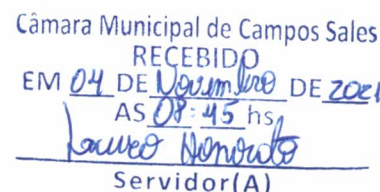 Câmara Municipal de Campos Sales
RECEBIDO
EM 04 DE Novembro DE 2021
AS 08:45 hs
Lauro Honorato
Servidor(A)